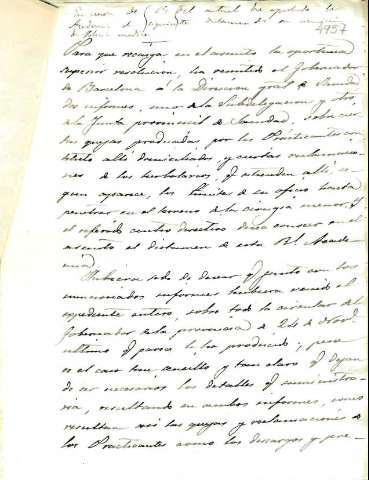 En sesion de 1º del actual se aprobó el
siguiente dictamen de la
4957
Para que recaiga en el asunto la oportuna
superior resolucion, ha remitido el Gobernador
de Barcelona á la Direccion gral de Sanidad
dos informes, uno de la Subdelegacion y otro
de la Junta provincial de Sanidad, sobre cier
tas quejas producidas por los Practicantes con
titulo alli domiciliados, y ciertas reclamacio
nes de los herbolarios, q̃ estienden alli, se
gun aparece, los limites de su oficio hasta
penetrar en el terreno de la cirugia menor, y
el referido centro directivo desea conocer en el
asunto el dictamen de esta Rl. Acade
mia.
Hubiera sido de desear q̃ junto con los
enunciados informes hubiera venido el
espediente entero, sobre todo la circular del
Gobernador de la provincia de 24 de Novre
ultimo q̃ parece lo ha producido; pero
es el caso tan sencillo y tan claro q̃ dejan
de ser necesarios los detalles q̃ suministra
ria, resultando en ambos informes, como
resultan asi las quejas y reclamaciones de
los Practicantes como los descargos y